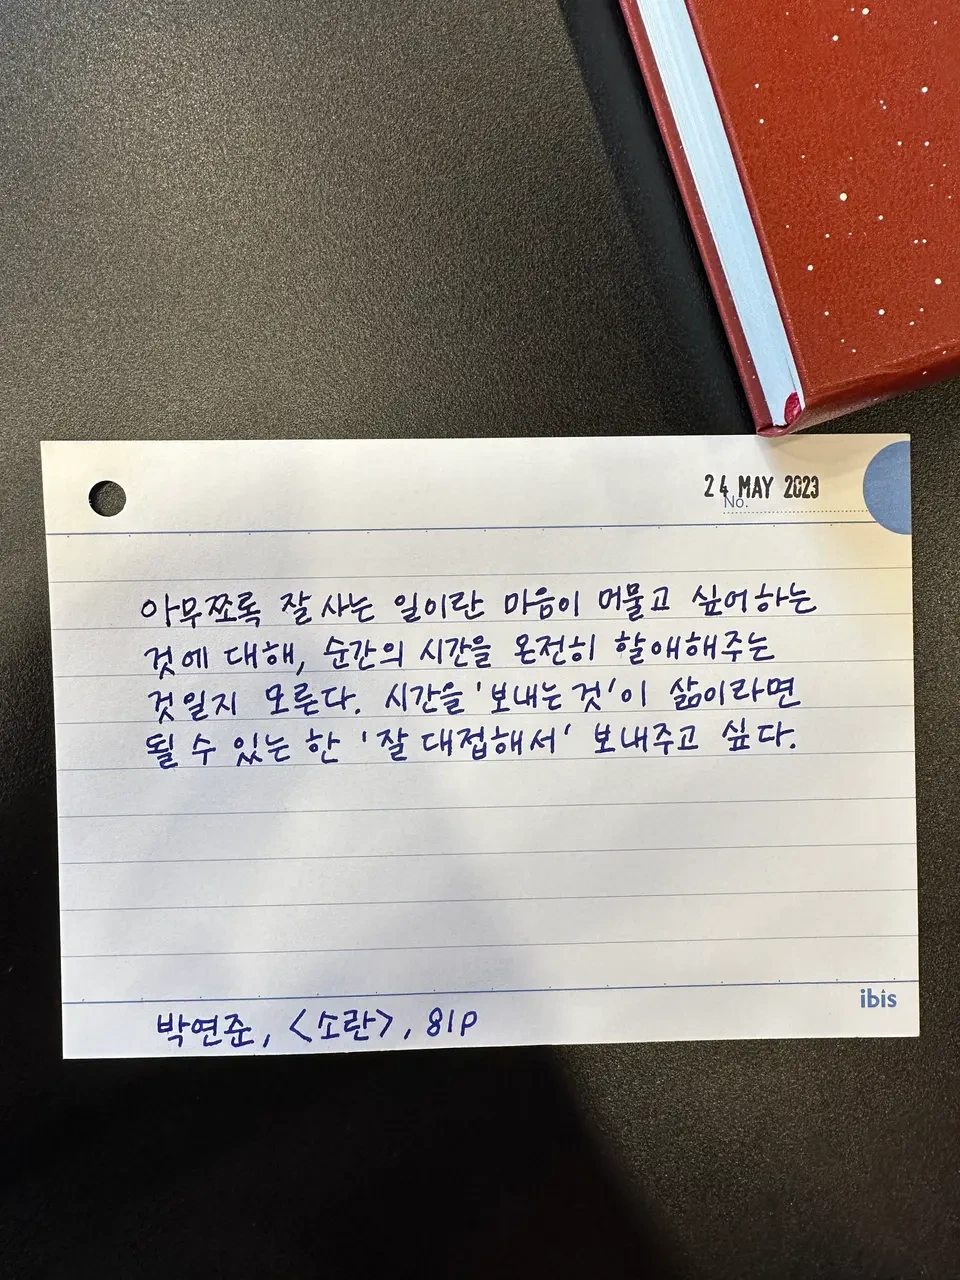 24 MAY 2023
No.
아무쪼록 잘 사는 일이란 마음이 머물고 싶어하는
것에 대해, 순간의 시간을 온전히 할애해주는
것일지 모른다. 시간을 '보내는 것'이 삶이라면
될 수 있는 한 '잘 대접해서' 보내주고 싶다.
ibis
박연준, <소란>, 81p